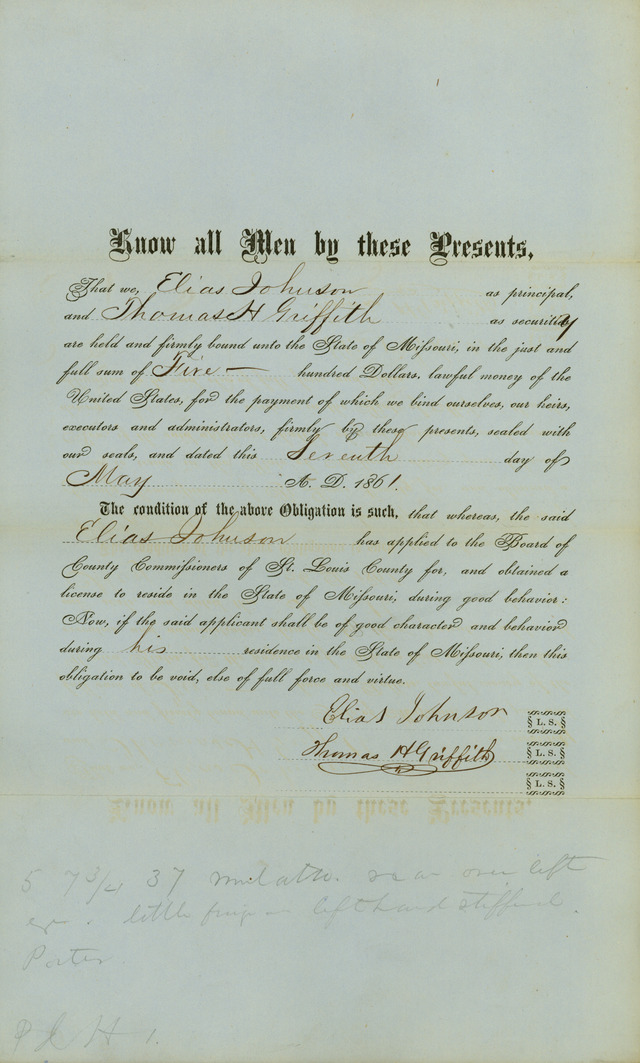 Know all Men by these Presents,
That we, Elias Johnson as principal,
and Thomas H Griffith as security
are held and firmly bound unto the State of Missouri, in the just and
full sum of Five — hundred Dollars, lawful money of the
United States, for the payment of which we bind ourselves, our heirs,
executors and administrators, firmly by these presents, sealed with
our seals, and dated this Seventh day of
May A. D. 1861.
The condition of the above Obligation is such, that whereas, the said
Elias Johnson has applied to the Board of
County Commissioners of St. Louis County for, and obtained a
license to reside in the State of Missouri, during good behavior:
Now, if the said applicant shall be of good character and behavior
during his residence in the State of Missouri, then this
obligation to be void, else of full force and virtue.
Elias Johnson § L. S. §
Thomas H Griffith § L. S. §
§ L. S. §
5 7 3/4 37 mulatto. scar over left
eye. little finger on left hand stiffened.
Porter